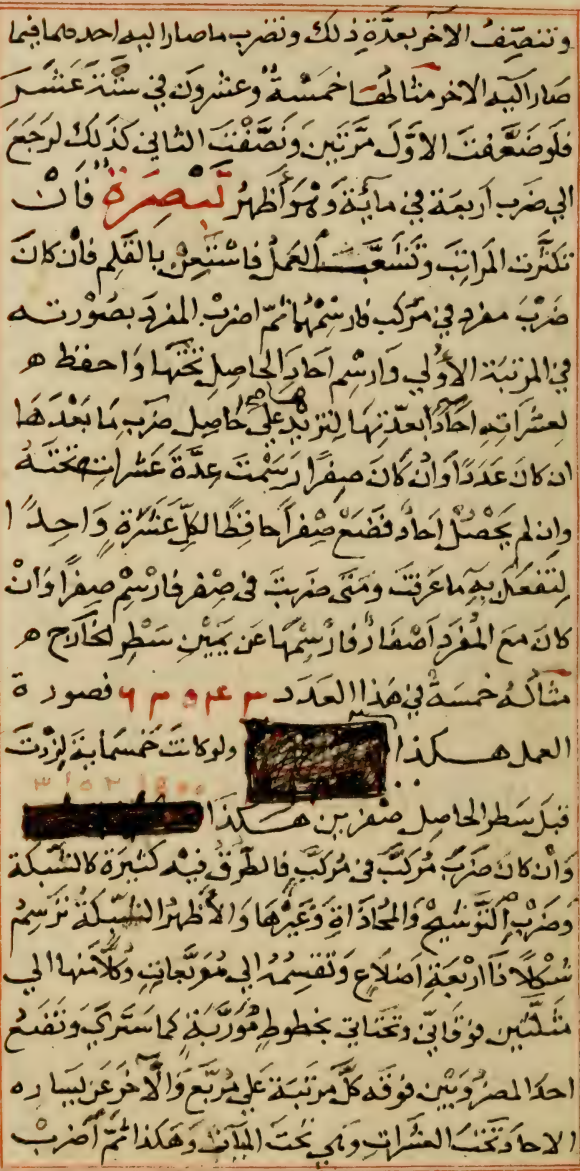 وتنصف الآخر بعدة ذلك وتضرب ما صار اليه احدهما فيما
صار اليه الاخر مثالها خمسة وعشرون في ستة عشر
فلو ضعّفت الاوّل مرّتين ونصّفت الثاني كذلك لرجع
الي ضرب اربعة في مائة وهو أظهر تبصرة فان
تكثرت المراتب وتشعّب العمل فاستعن بالقلم فان كان
ضرب مفرد في مركب فارسمهما ثمّ اضرب المفرد بصورته
في المرتبة الأولي وارسم احاد الحاصل تحتها واحفظ ه
لعشراته احاداً بعدّتها لتزيد علي حاصل ضرب ما بعدها
ان كان عدداً وان كان صفرا رسمت عدة عشراته تحته
وان لم يحصل احاد فضع صفراً حافظا لكلّ عشرة واحدًا
لتفعل به ما عرفت ومتى ضربت في صفر فارسم صفراً وان
كان مع المفرد اصفار فارسمها عن يمين سطر الخارج ه
مثاله خمسة في هذا العدد
فصورة
العمل هكذا ولو كانت خمسماية لزدت
قبل سطر الحاصل صفرين هكذا
وان كان ضرب مركّب في مركّب فالطرق فيه كثيرة كالشبكة
وضرب التوشيح والمحاذاة وغيرها والأظهر الشبكة ترسم
شكلا ذا اربعة اضلاع وتقسمه الي مربّعات وكلاّ منها الي
مثلثين فوقاني وتحتاني بخطوط مورّبة كما ستري وتضع
احد المضروبين فوقه كلّ مرتبة علي مربّع والآخر عن يساره
الاحاد تحت العشرات وهي تحت المئات وهكذا ثمّ اضرب